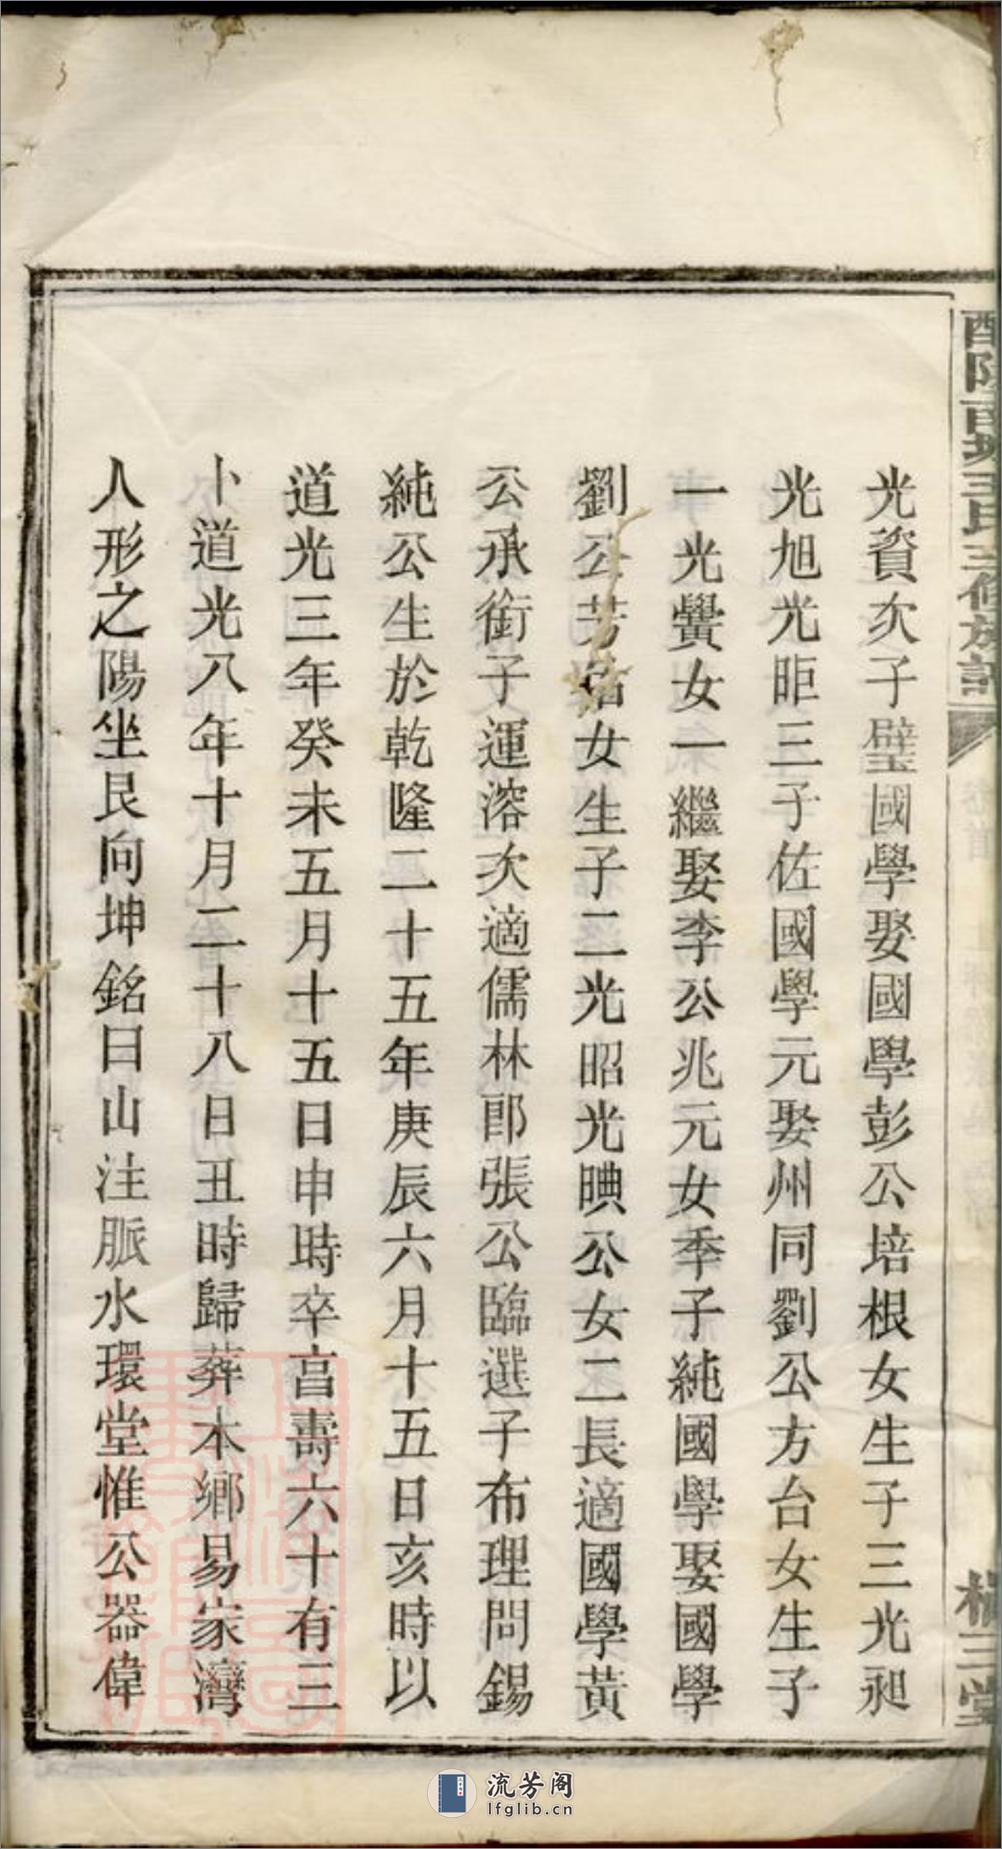 醴陵西
王氏三修族譜
三
堂
光資次子璧國學娶國學彭公培根女生子三光昶
光旭光昛三子佐國學元娶州同劉公方台女生子
一光黌女一繼娶李公兆元女季子純國學娶國學
劉公芳 女生子二光昭光晪公女二長適國學黃
公承銜子運溶次適儒林郎張公臨選子布理問錫
純公生於乾隆二十五年庚辰六月十五日亥時以
道光三年癸未五月十五日申時卒亯壽六十有三
卜道光八年十月二十八日丑時歸葬本鄉易家灣
人形之陽坐艮向坤銘曰山注脈水環堂惟公器偉
流芳阁
lfglib.cn